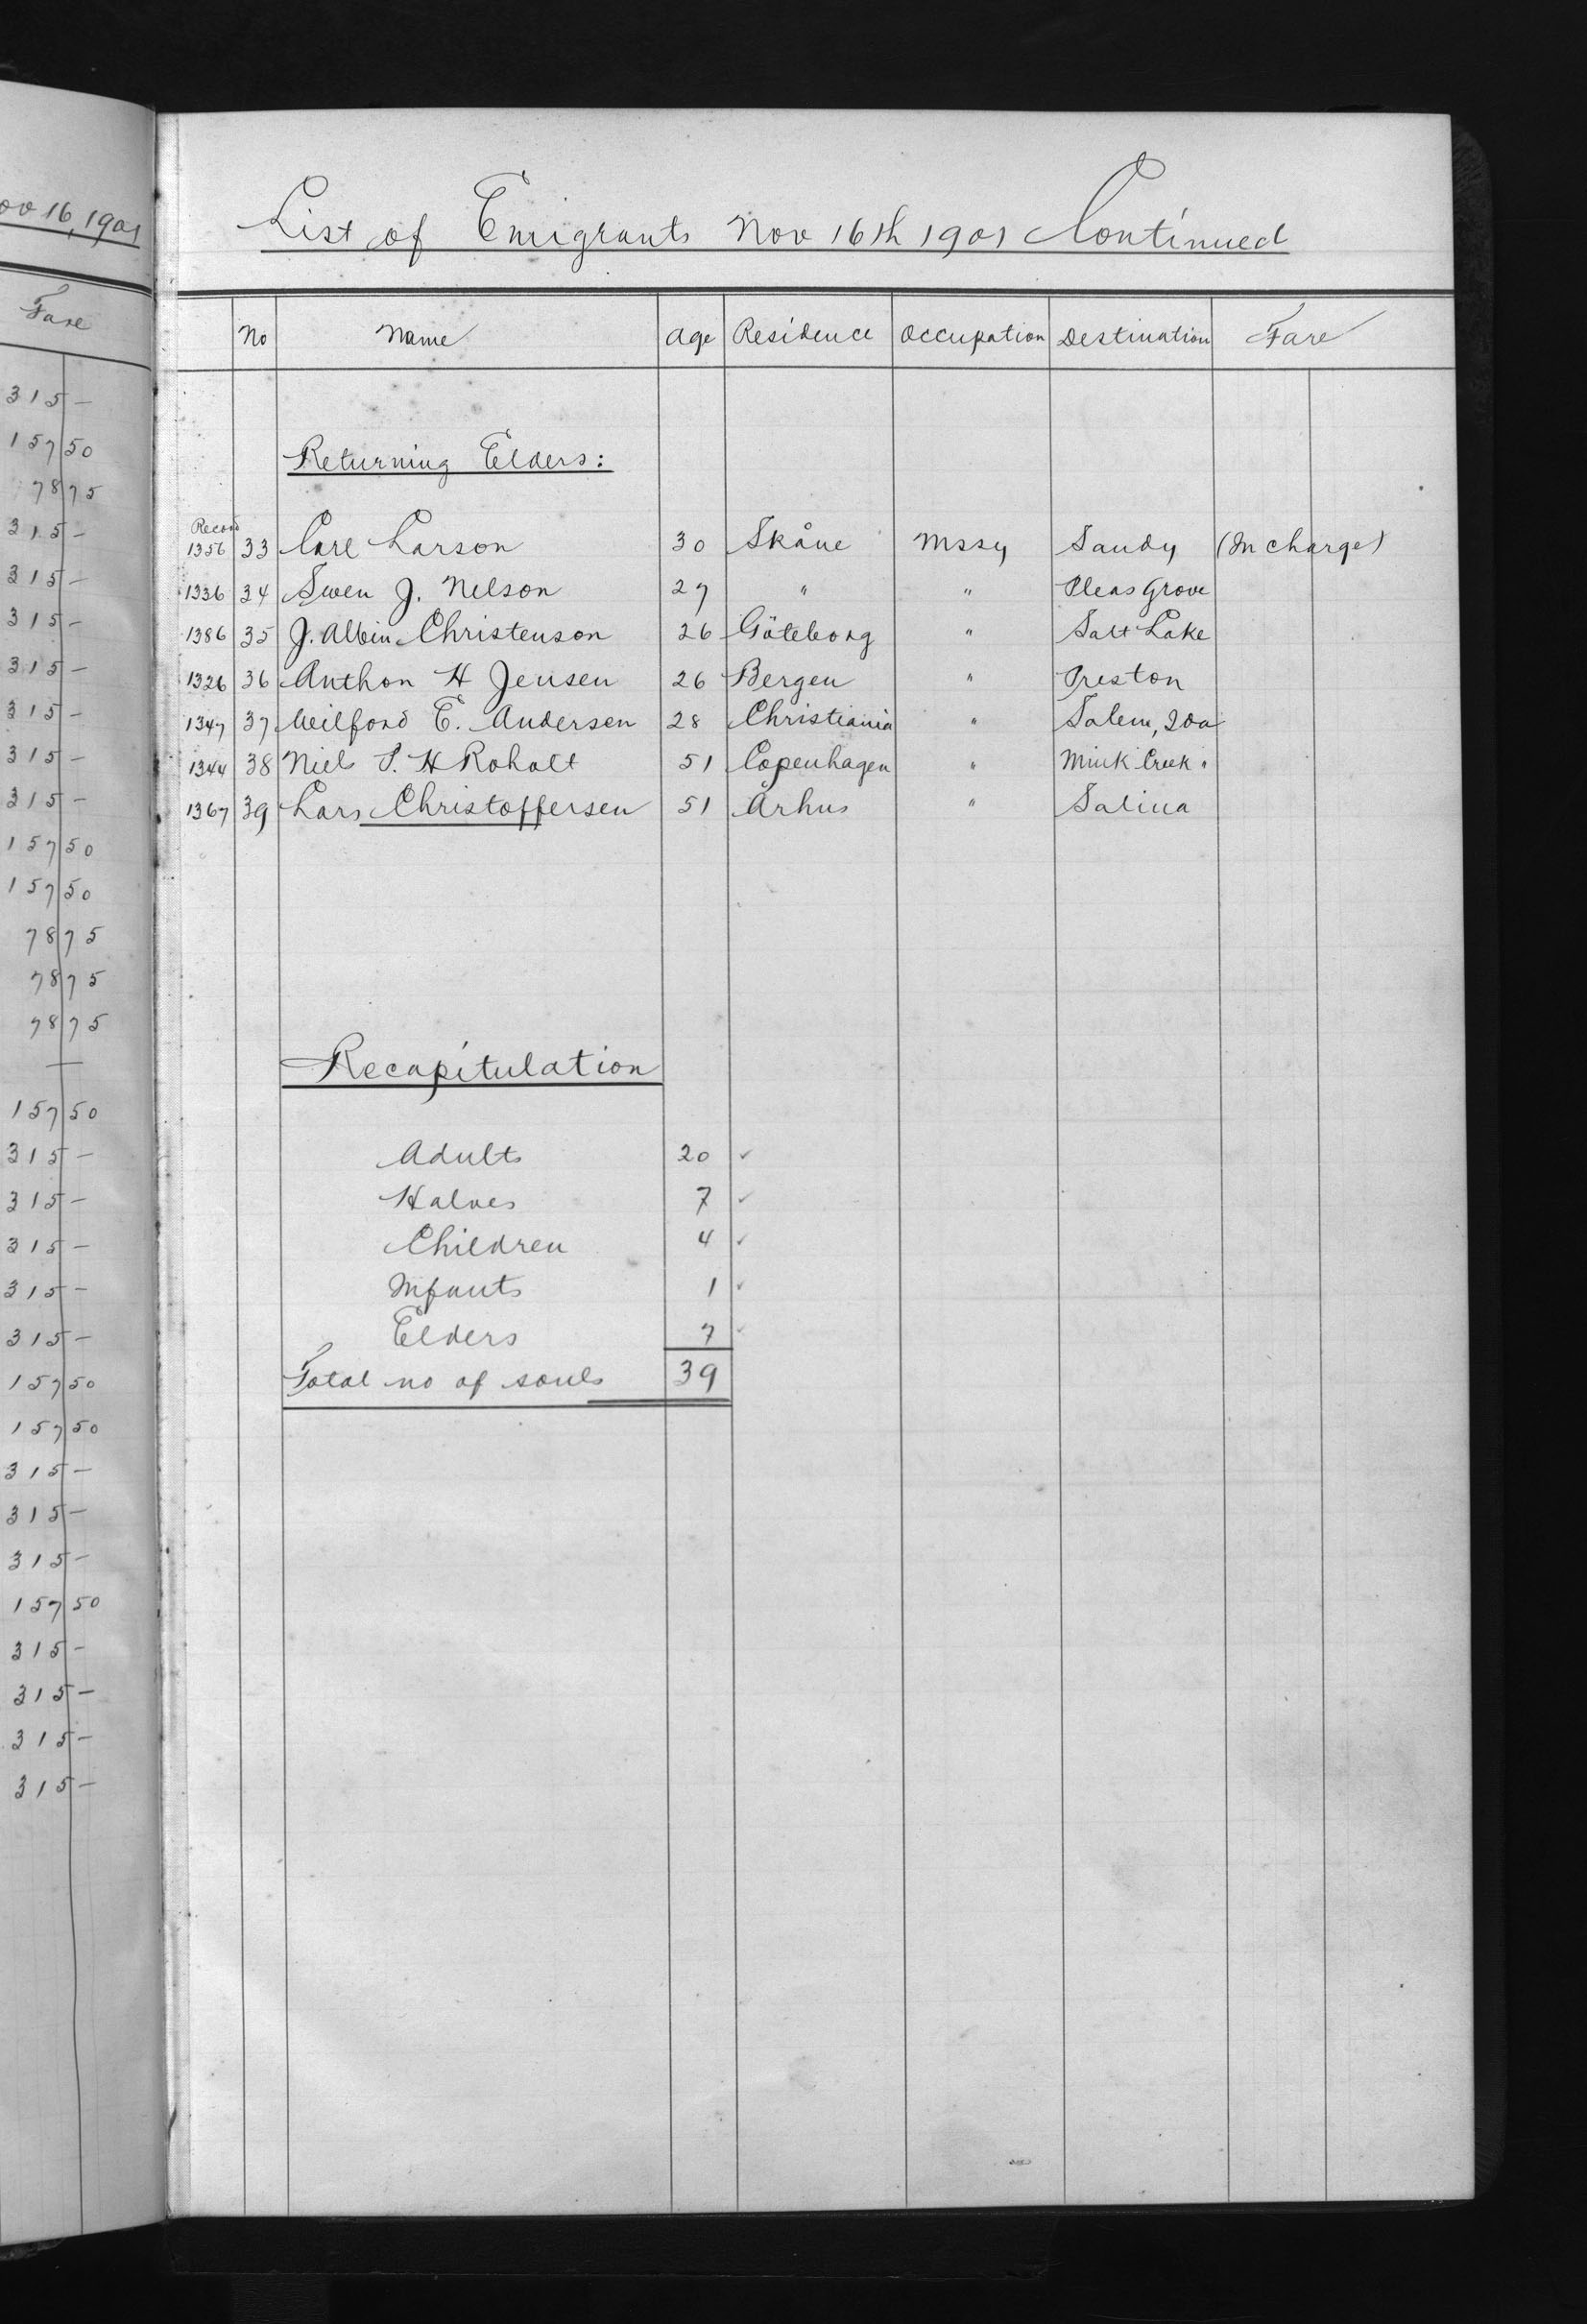 ov 16, 1901
Fare
315 -
157 50
78 75
315 -
315 -
315 -
315 -
315 -
315 -
315 -
157 50
157 50
78 75
78 75
78 75
—
157 50
315 -
315 -
315 -
315 -
315 -
157 50
157 50
315 -
315 -
315 -
157 50
315 -
315 -
315 -
315 -
List of Emigrants Nov 16th 1901 Continued
No Name Age Residence Occupation Destination Fare
Returning Elders:
Record
1356 33 Carl Larson 30 Skåne Mssy Sandy (In charge)
1336 34 Swen J. Nelson 27 " " Pleas Grove
1386 35 J. Albin Christenson 26 Göteborg " Salt Lake
1326 36 Anthon H Jensen 26 Bergen " Preston
1347 37 Wilford E. Andersen 28 Christiania " Salem, Ida
1344 38 Niels P. H Roholt 51 Copenhagen " Mink Creek "
1367 39 Lars Christoffersen 51 Århus " Salina
Recapitulation
Adults 20 ✓
Halves 7 ✓
Children 4 ✓
Infants 1 ✓
Elders 7 ✓
Total no of souls 39